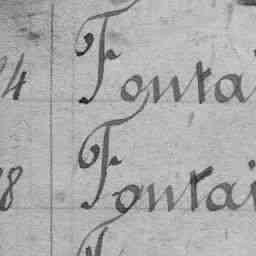 4 Fonta
8 Fontai